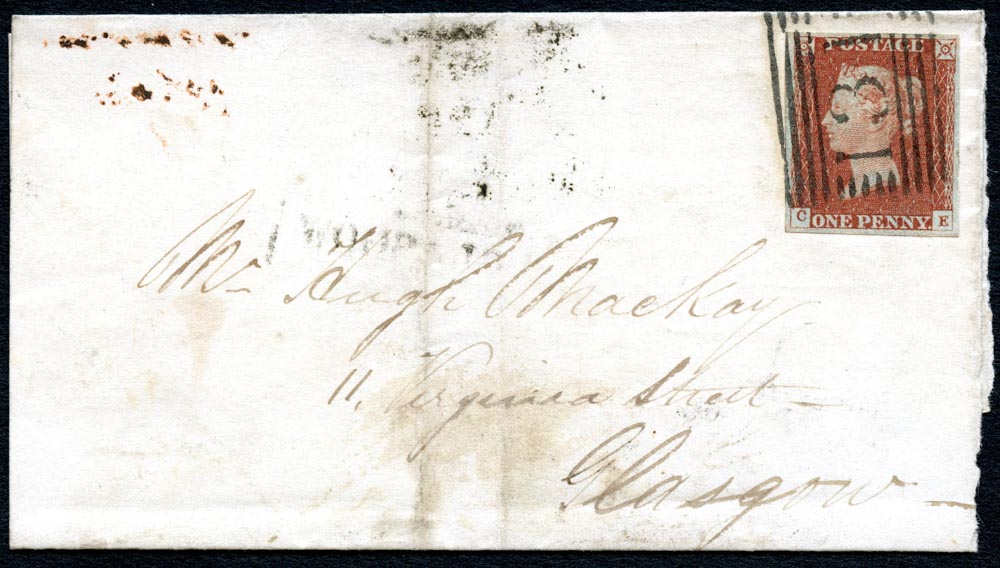 POSTAGE
13
C ONE PENNY. E
Mr Hugh Mackay
11, Virginia Street
Glasgow